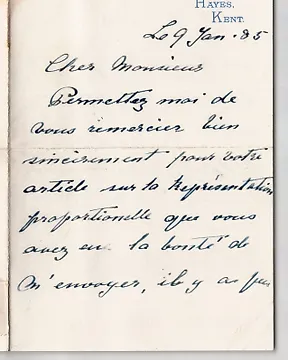 HAYES,
KENT.
Le 9 Jan. 85
Cher Monsieur
Permettez moi de
vous remercier bien
sincèrement pour votre
article sur la Représentation
proportionelle que vous
avez eu la bonté de
m'envoyer, il y a peu